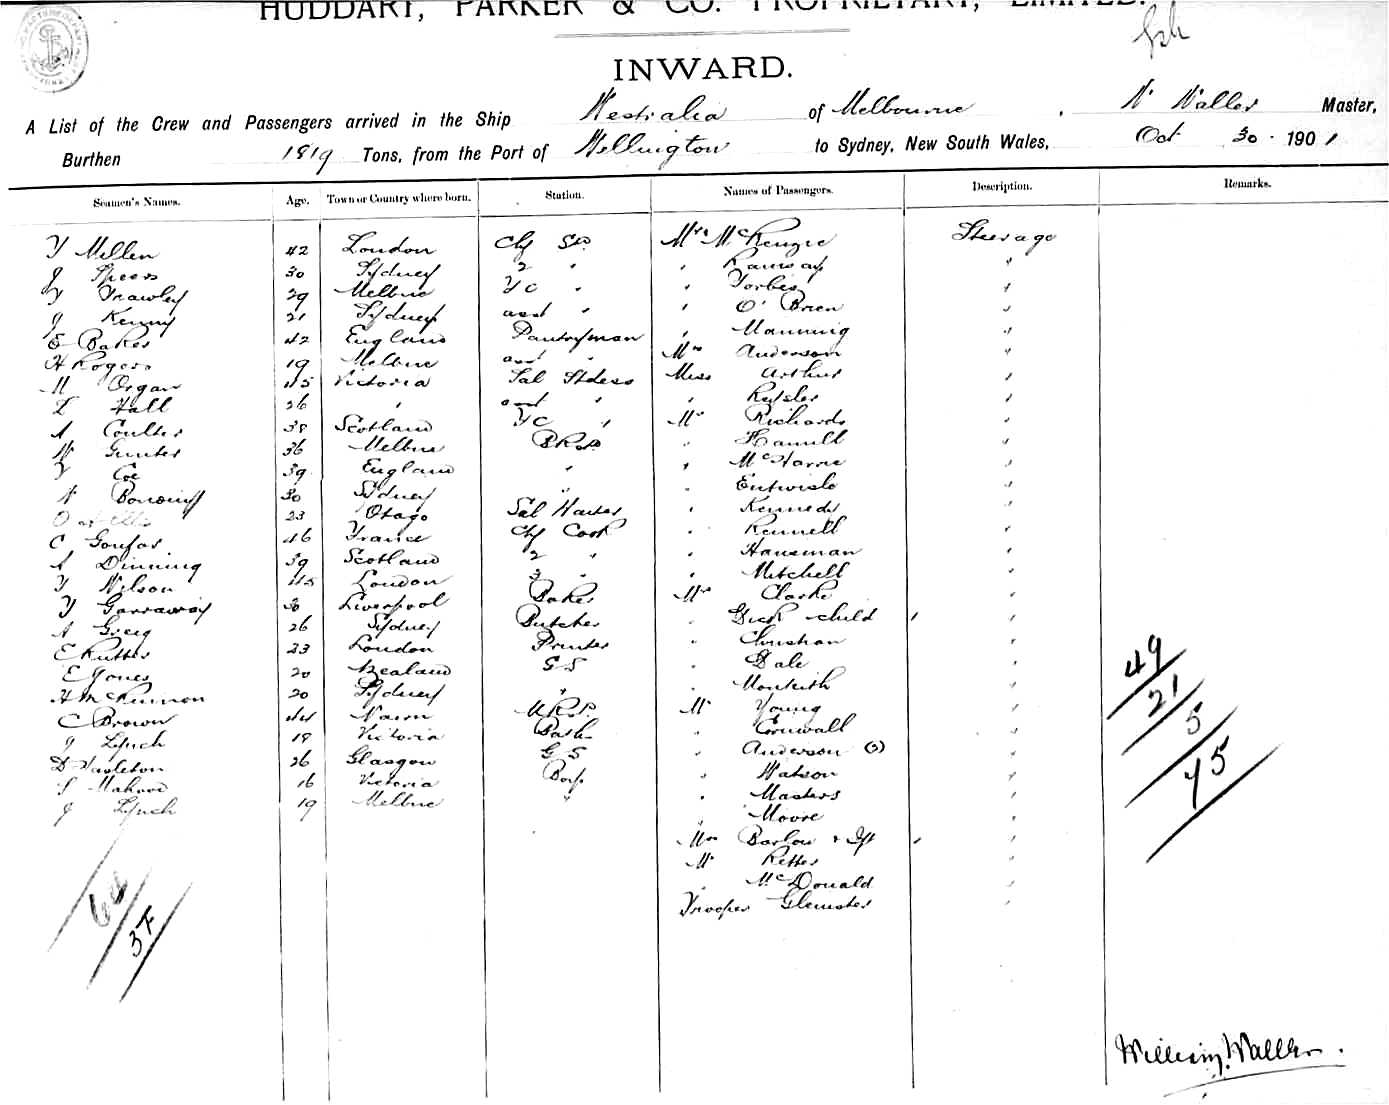 HUDDART, PARKER & CO. PROPRIETARY, LIMITED.
INWARD.
A List of the Crew and Passengers arrived in the Ship Westralia of Melbourne, W Waller Master,
Burthen 1819 Tons, from the Port of Wellington to Sydney, New South Wales, Oct 30 1901
Seamen's Names. Age. Town or Country where born. Station. Names of Passengers. Description. Remarks.
Mellen 42 London Chf Mrs McKenzie Steerage
J Speers 30 Sydney 2 " " Ramsay "
Frawley 29 Melbne " " Forbes "
J Kenny 21 Sydney asst " " O'Brien "
E Baker 42 England Pantryman " Manning "
H Rogers 19 Melbne asst " Mrs Anderson "
M Organ 45 Victoria Sal Stdess Miss Arthur "
Hall 26 " asst " "
A Coulter 38 Scotland " Mr Richards "
W Gunter 36 Melbne " Hamill "
Coe 39 England " " "
30 Sydney " " Entwisle "
23 Otago Sal Waiter " Kennedy "
C 46 France Chf Cook " Kennell "
A Dinning 39 Scotland 2 " " Hansman "
Wilson 45 London 3 " " Mitchell "
Garraway 30 Liverpool Baker Mrs Clarke "
A Greig 26 Sydney Butcher " Dick child "
E Rutter 23 London Printer " Christian "
E Jones 20 NZealand G S " Dale "
H McKinnon 20 Sydney " " Monteith "
C Brown 44 Nairn Mr Young "
J Lynch 18 Victoria " Cornwall "
26 Glasgow G S " Anderson (3) "
16 Victoria Boy " Watson "
J Lynch 19 Melbne " " Masters "
" Moore "
Mrs Barlow "
Mr "
" McDonald "
Trooper "
49
21
5
75
37
William Waller.